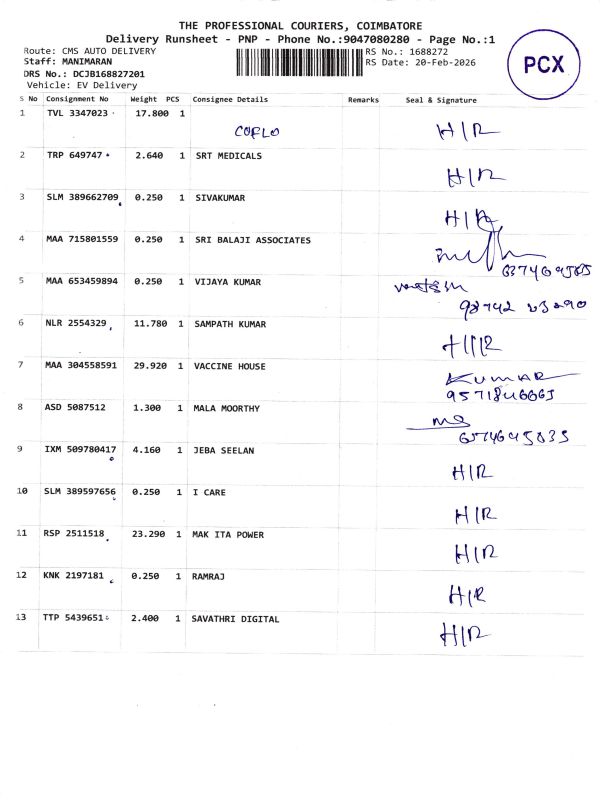 THE PROFESSIONAL COURIERS, COIMBATORE
Delivery Runsheet - PNP - Phone No.:9047080280 - Page No.:1
Route: CMS AUTO DELIVERY RS No.: 1688272
Staff: MANIMARAN RS Date: 20-Feb-2026
DRS No.: DCJB168827201
Vehicle: EV Delivery
PCX
S No Consignment No Weight PCS Consignee Details Remarks Seal & Signature
1 TVL 3347023 17.800 1 H/R
2 TRP 649747 2.640 1 SRT MEDICALS H/R
3 SLM 389662709 0.250 1 SIVAKUMAR H/R
4 MAA 715801559 0.250 1 SRI BALAJI ASSOCIATES
5 MAA 653459894 0.250 1 VIJAYA KUMAR
6 NLR 2554329 11.780 1 SAMPATH KUMAR
7 MAA 304558591 29.920 1 VACCINE HOUSE KUMAR
8 ASD 5087512 1.300 1 MALA MOORTHY
9 IXM 509780417 4.160 1 JEBA SEELAN H/R
10 SLM 389597656 0.250 1 I CARE H/R
11 RSP 2511518 23.290 1 MAK ITA POWER H/R
12 KNK 2197181 0.250 1 RAMRAJ H/R
13 TTP 5439651 2.400 1 SAVATHRI DIGITAL H/R